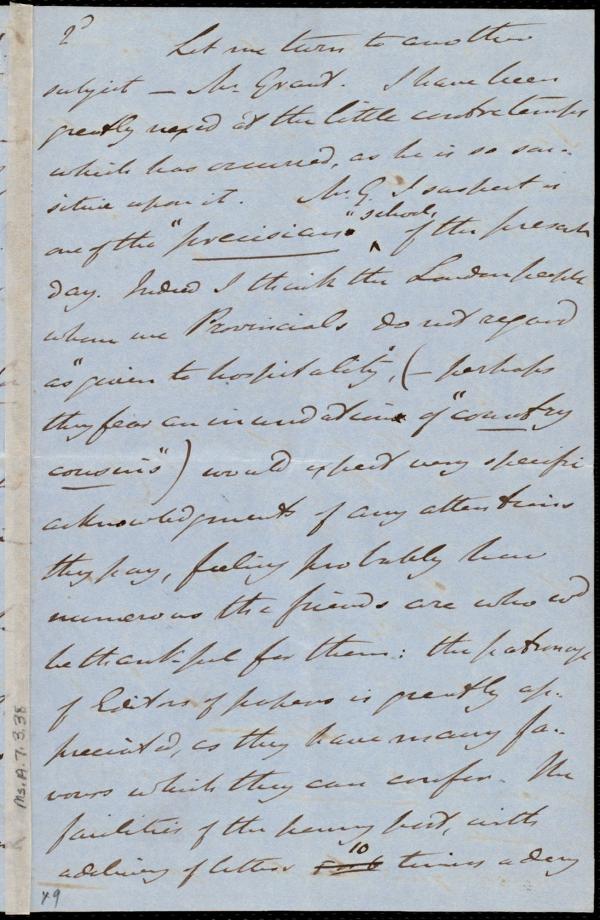 2d
Let me turn to another
subject — Mr Grant. I have been
greatly vexed at the little contretemps
which has occurred, as he is so sen-
sitive upon it. Mr. G. I suspect is
one of the "precisians" school, of the present
day. Indeed I think the London people
whom we Provincials do not regard
as "given to hospitality", (— perhaps
they fear an inundation of "country
cousins") would expect very specific
acknowledgments of any attentions
they pay, feeling probably how
numerous the friends are who wd
be thankful for them: the patronage
of Editors of papers is greatly ap-
preciated, as they have many fa-
vours which they can confer. The
facilities of the penny post, with
a delivery of letters 10 times a day
49
Ms. A. 7. 3. 38